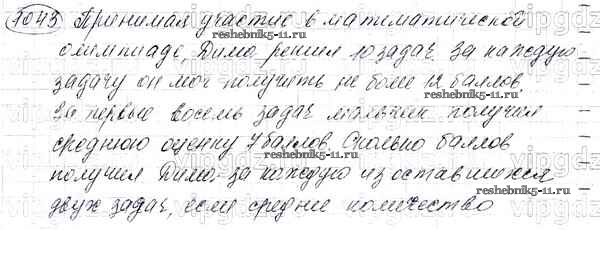 1043 Принимая участие в математической
олимпиаде, Дима решил 10 задач. За каждую
задачу он мог получить не более 12 баллов.
За первые восемь задач мальчик получил
среднюю оценку 7 баллов. Сколько баллов
получил Дима за каждую из оставшихся
двух задач, если среднее количество
reshebnik5-11.ru
reshebnik5-11.ru
reshebnik5-11.ru
reshebnik5-11.ru
vipgdz
vipgdz
vipgdz